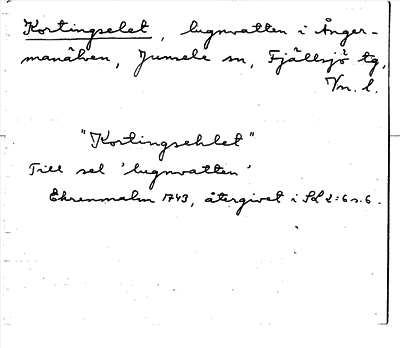 Kortingselet, lugnvatten i Ånger-
manälven, Junsele sn, Fjällsjö tg,
V/n. l.
"Kortingsehlet"
Till sel 'lugnvatten'
Ehrenmalm 1743, återgivet i SL 2:6 s. 6.